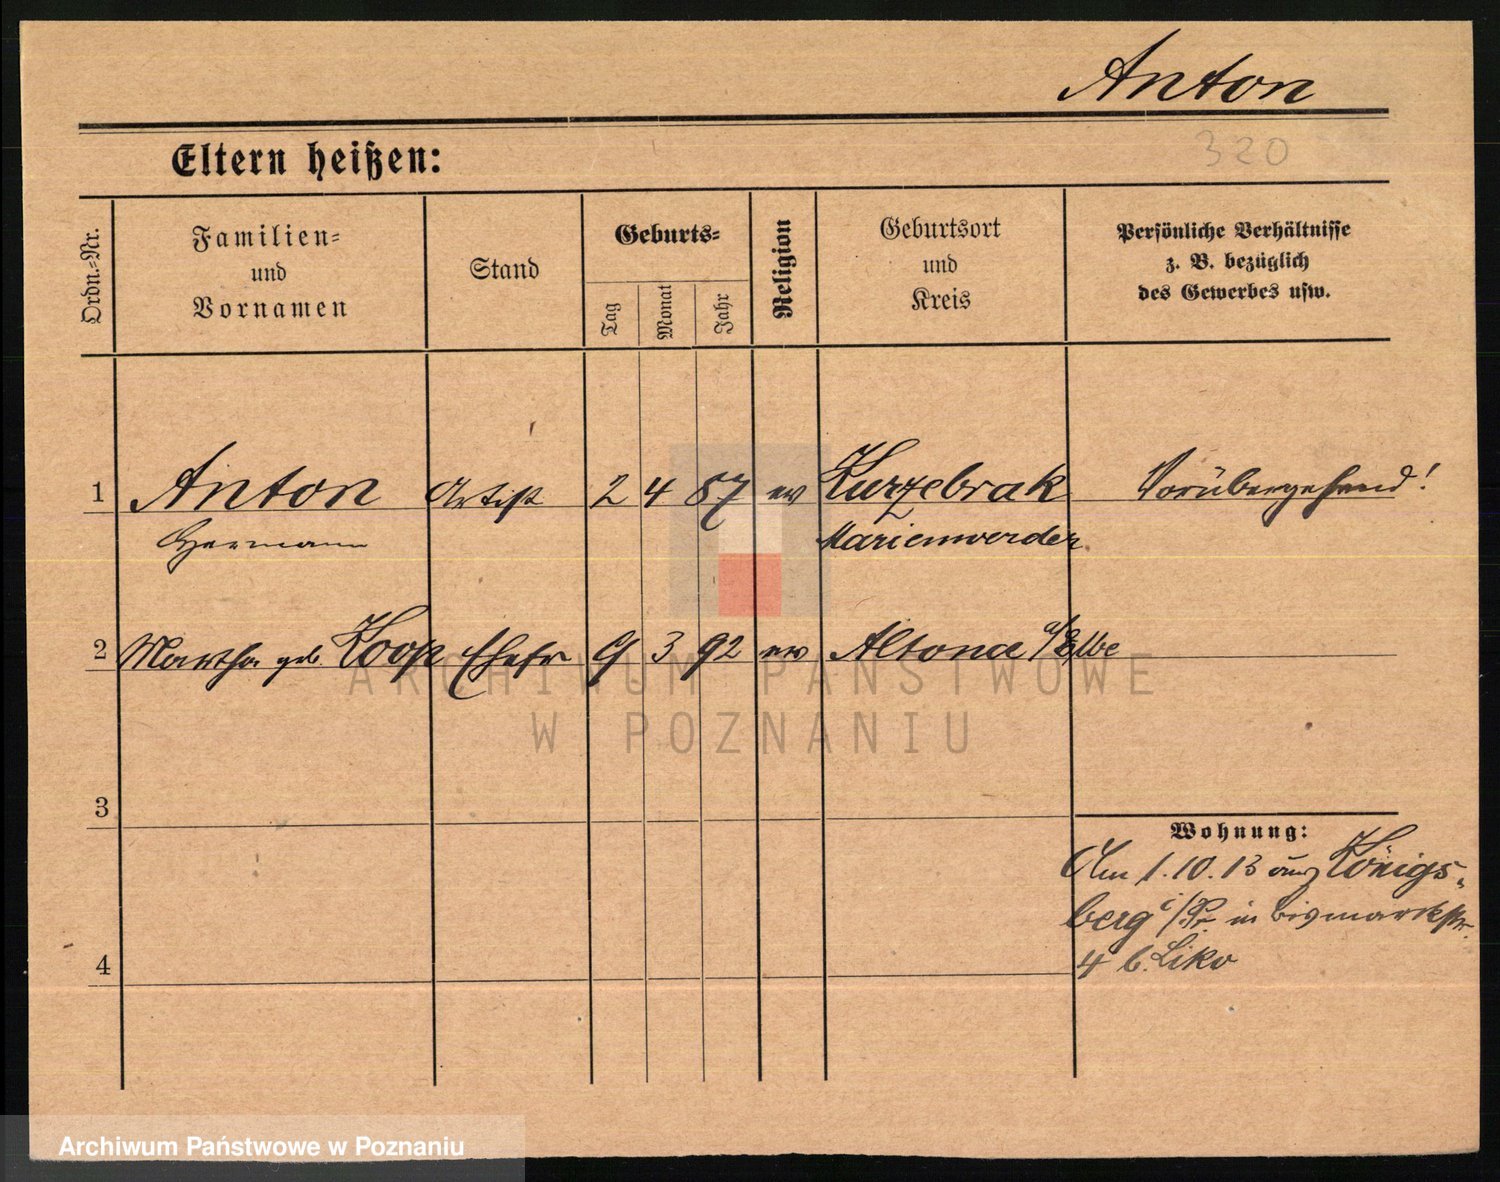 Anton
320
Eltern heißen:
Ordn.-Nr.
Familien-
und
Vornamen
Stand
Geburts-
Tag
Monat
Jahr
Religion
Geburtsort
und
Kreis
Persönliche Verhältnisse
z. B. bezüglich
des Gewerbes usw.
1 Anton Artist 2 4 87 ev Kurzebrak Vorübergehend!
Hermann Marienwerder
2 Martha geb. Koop Ehefr 9 3 92 ev Altona a/Elbe
3
Wohnung:
Am 1.10.13 aus Königs-
berg i/Pr in Bismarckstr.
4 b. Liko
4
ARCHIWUM PAŃSTWOWE
W POZNANIU
Archiwum Państwowe w Poznaniu